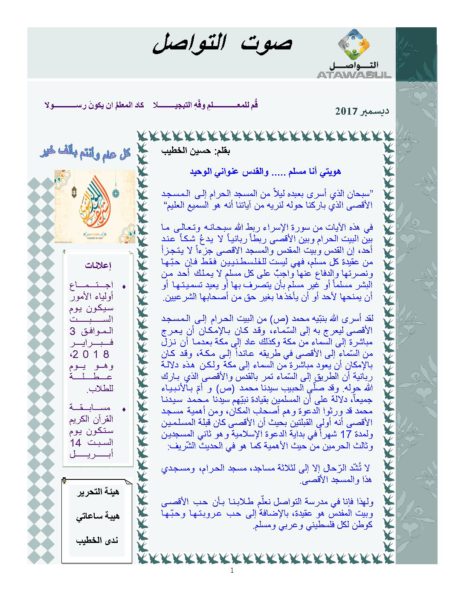 صوت التواصل
التواصل
ATAWASUL
قُم للمعـــــلم وفّه التبجيـــلا كاد المعلمُ ان يكونَ رســـولا
ديسمبر 2017
كل عام وأنتم بألف خير
بقلم: حسين الخطيب
هويتي أنا مسلم ..... والقدس عنواني الوحيد
"سبحان الذي أسرى بعبده ليلاً من المسجد الحرام إلى المسجد
الأقصى الذي باركنا حوله لنريه من آياتنا أنه هو السميع العليم"
في هذه الآيات من سورة الإسراء ربط الله سبحانه وتعالى ما
بين البيت الحرام وبين الأقصى ربطاً ربانياً لا يدعُ شكاً عند
أحد، إن القدس وبيت المقدس والمسجد الاقصى جزءاً لا يتجزأ
من عقيدة كل مسلم، فهي ليست للفلسطينيين فقط فإن حبّها
ونصرتها والدفاع عنها واجبٌ على كل مسلم لا يملك أحد من
البشر مسلماً أو غير مسلم بأن يتصرف بها أو يعيد تسميتها أو
أن يمنحها لأحد أو أن يأخذها بغير حق من أصحابها الشرعيين.
لقد أسرى الله بنبيّه محمد (ص) من البيت الحرام إلى المسجد
الأقصى ليعرج به إلى السّماء، وقد كان بالإمكان أن يعرج
مباشرة إلى السماء من مكة وكذلك عاد إلى مكة بعدما أن نزل
من السّماء إلى الأقصى في طريقه عائداً إلى مكة، وقد كان
بالإمكان أن يعود مباشرة من السماء إلى مكة ولكن هذه دلالة
ربانية أن الطّريق إلى السّماء تمر بالقدس والأقصى الذي بارك
الله حوله. وقد صلّى الحبيب سيدنا محمد (ص) و أمّ بالأنبياء
جميعاً، دلالة على أن المسلمين بقيادة نبيّهم سيدنا محمد سيدنا
محمد قد ورثوا الدعوة وهم أصحاب المكان، ومن أهمية مسجد
الأقصى أنه أولى القبلتين بحيث أن الأقصى كان قبلة المسلمين
ولمدة 17 شهراً في بداية الدعوة الإسلامية وهو ثاني المسجدين
وثالث الحرمين من حيث الأهمية كما هو في الحديث الشّريف:
لا تُشد الرّحال إلا إلى لثلاثة مساجد، مسجد الحرام، ومسجدي
هذا والمسجد الأقصى.
ولهذا فإننا في مدرسة التواصل نعلّم طلابنا بأن حب الأقصى
وبيت المقدس هو عقيدة، بالإضافة إلى حب عروبتها وحبّها
كوطن لكل فلسطيني وعربي ومسلم.
إعلانات
اجتماع
أولياء الأمور
سيكون يوم
السبت
الموافق 3
فبراير
2018،
وهو يوم
عطلة
للطلاب.
مسابقة
القرآن الكريم
ستكون يوم
السبت 14
أبريل
هيئة التحرير
هيبة ساعاتي
ندى الخطيب
1